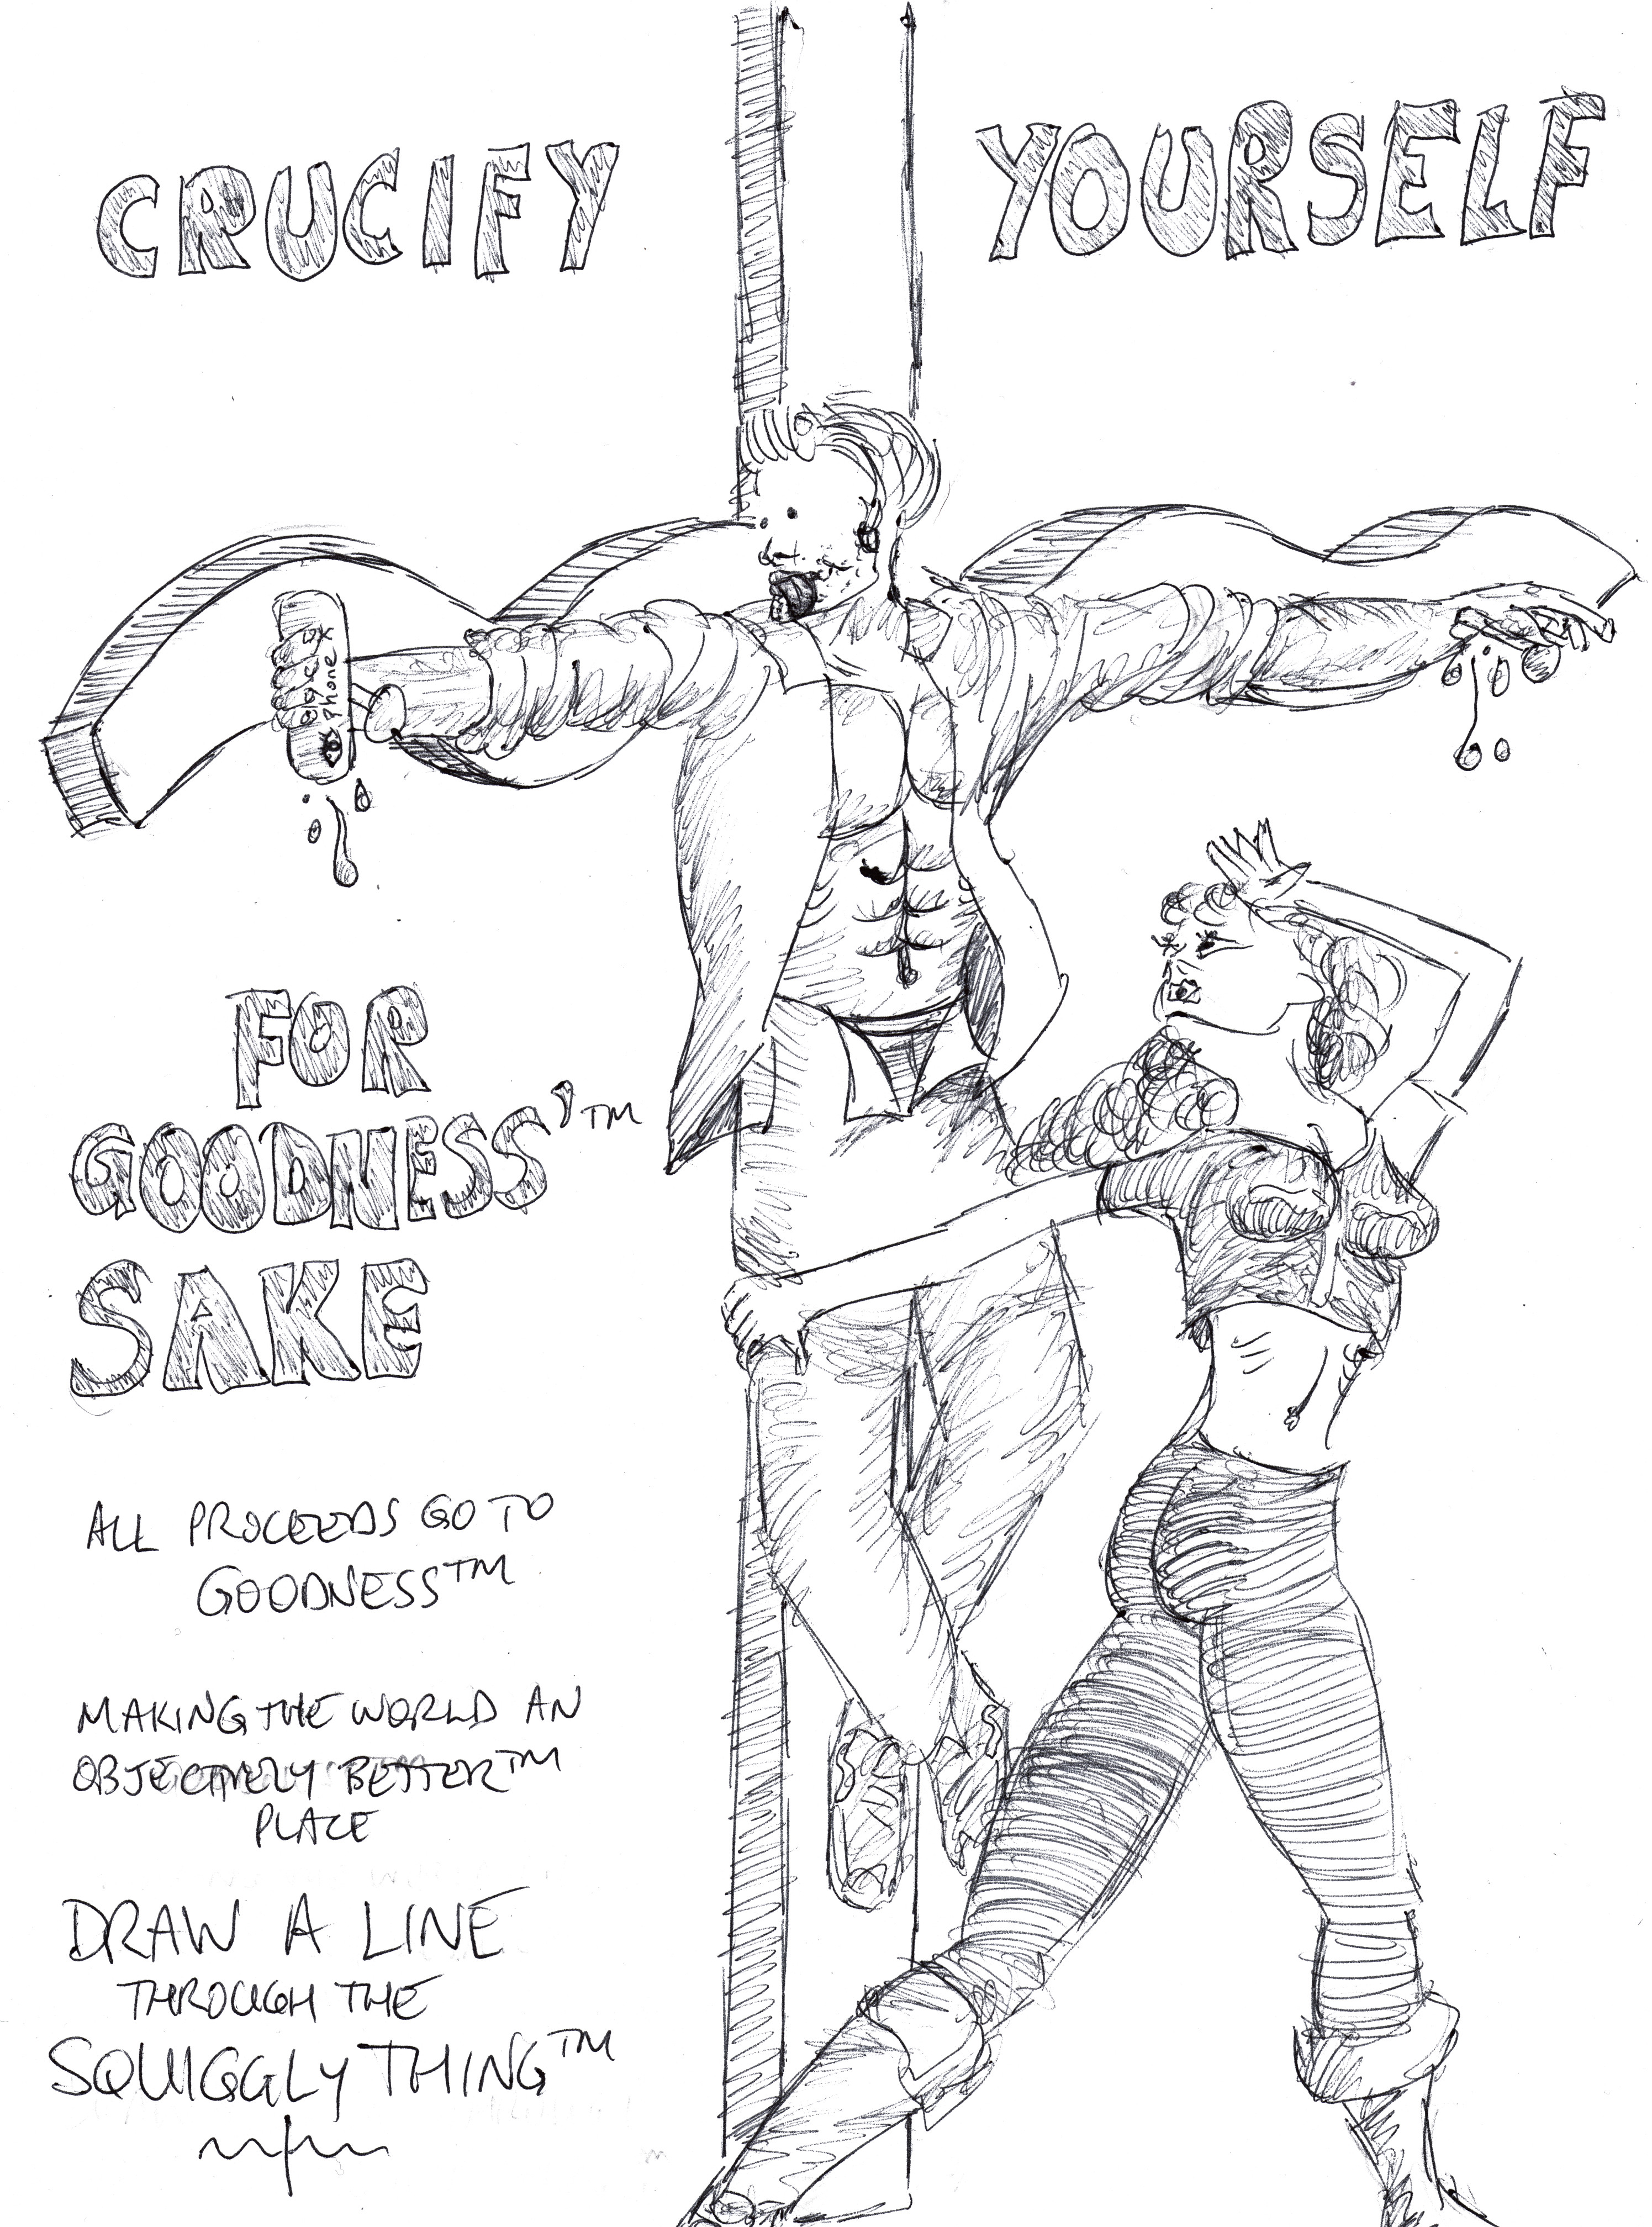 CRUCIFY YOURSELF
galaxy
phone X
FOR
GOODNESS'™
SAKE
ALL PROCEEDS GO TO
GOODNESS™
MAKING THE WORLD AN
OBJECTIVELY BETTER™
PLACE
DRAW A LINE
THROUGH THE
SQUIGGLY THING™